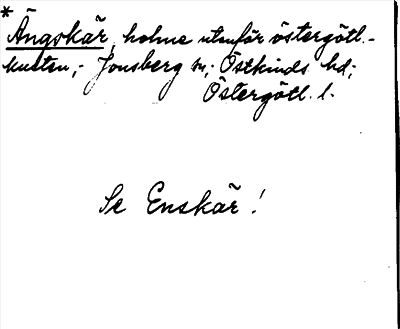 * Ängskär, holme utanför östergötl.-
kusten,; Jonsberg sn; Östkinds hd;
Östergötl. l.
Se Enskär!